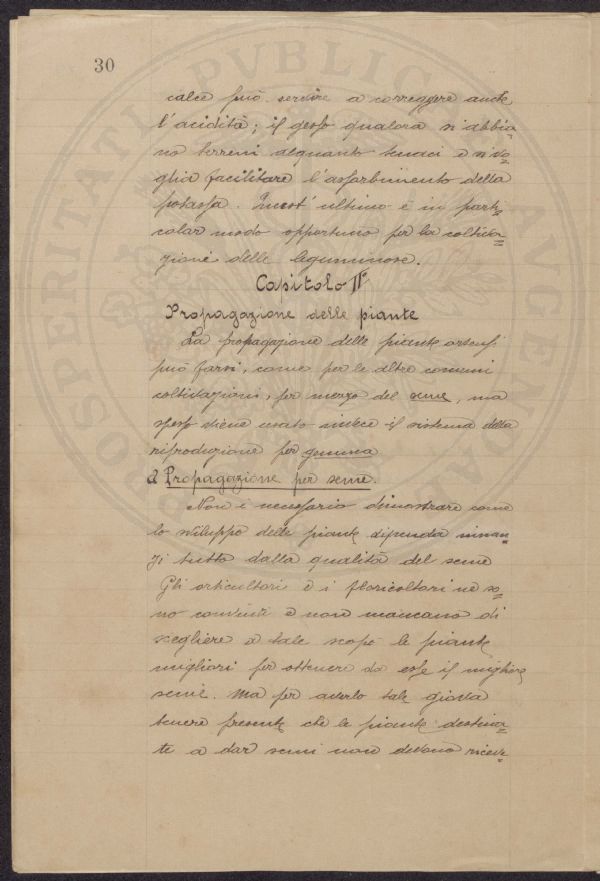 30
calce può servire a correggere anche
l'acidità; il gesso qualora s'abbia=
no terreni alquanto tenaci e si vo=
glia facilitare l'assorbimento della
potassa. Quest'ultimo è in parti=
colar modo opportuno per la coltiva=
zione delle leguminose.
Capitolo IIº
Propagazione delle piante
La propagazione delle piante ortensi
può farsi, come per le altre comuni
coltivazioni, per mezzo del seme, ma
spesso viene usato invece il sistema della
riproduzione per gemma
a Propagazione per seme.
Non è necessario dimostrare come
lo sviluppo delle piante dipenda innan=
zi tutto dalla qualità del seme
Gli orticultori e i floricoltori ne so=
no convinti e non mancano di
scegliere a tale scopo le piante
migliori per ottenere da esse il miglior
seme. Ma per averlo tale giova
tenere presente che le piante destina=
te a dar semi non devono ricev=
PROSPERITATI PVBLICAE AVGENDAE